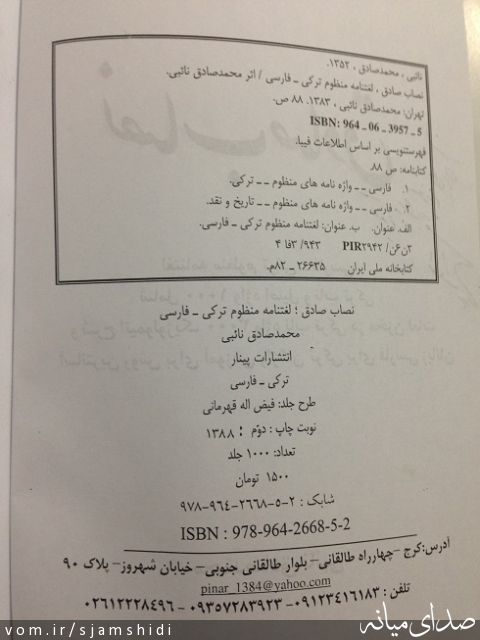 نائبی ، محمدصادق ، ۱۳۵۲.
نصاب صادق ، لغتنامه منظوم ترکی ـ فارسی / اثر محمدصادق نائبی.
تهران: محمدصادق نائبی ، ۱۳۸۳. ۸۸ ص.
ISBN: 964 _ 06 _ 3957 _ 5
فهرستنویسی بر اساس اطلاعات فیپا.
کتابنامه: ص ۸۸.
۱. فارسی ـ ـ واژه نامه های منظوم ـ ـ ترکی.
۲. فارسی ـ ـ واژه نامه های منظوم ـ ـ تاریخ و نقد.
الف. عنوان. ب. عنوان: لغتنامه منظوم ترکی ـ فارسی.
۳ن۶ن/ PIR۲۹۴۲ ۹۴۳/ ۳فا ۴
کتابخانه ملی ایران ۲۶۶۳۵ ـ ۸۲م.
نصاب صادق ؛ لغتنامه منظوم ترکی ـ فارسی
محمدصادق نائبی
انتشارات پینار
ترکی ـ فارسی
طرح جلد: فیض اله قهرمانی
نوبت چاپ : دوّم ؛ ۱۳۸۸
تعداد: ۱۰۰۰ جلد
۱۵۰۰ تومان
شابک : ۲-۵-۲۶۶۸-۹۶۴-۹۷۸
ISBN : 978-964-2668-5-2
آدرس: کرج – چهارراه طالقانی– بلوار طالقانی جنوبی– خیابان شهروز– پلاک ۹۰
pinar_1384@yahoo.com
تلفن : ۰۹۱۲۳۴۱۶۱۸۳ - ۰۹۳۵۷۲۸۳۹۲۳ - ۰۲۶۱۲۲۲۸۴۹۶
vom.ir/sjamshidi
صدای میانه